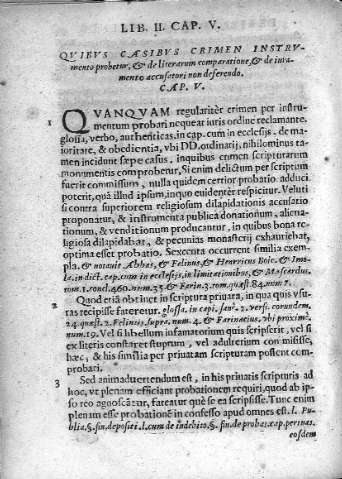 LIB. II. CAP. V.
QVIBVS CASIBVS CRIMEN INSTRV-
mento probetur, & de literarum comparatione, & de iura-
mento accusatori non deferendo.
CAP. V.
1 QVANQVAM regulariter crimen per instru-
mentum probari nequeat iuris ordine reclamante.
glossa, verbo, authenticas, in cap. cum in ecclesijs. de ma-
ioritate, & obedientia, vbi DD. ordinarij, nihilominus ta-
men incidunt sæpe casus, in quibus crimen scripturarum
monumentis comprobetur, Si enim delictum per scriptum
fuerit commissum, nulla quidem certior probatio adduci
poterit, quã illud ipsum, in quo euidenter respicitur. Veluti
si contra superiorem religiosum dilapidationis accusatio
proponatur, & instrumenta publica donationum, aliena-
tionum, & venditionum producantur, in quibus bona re-
ligiosa dilapidabat, & pecunias monasterij exhauriebat,
optima esset probatio. Sexcenta occurrent similia exem-
pla. & notauit Abbas, & Felinus, & Henricus Boic. & Imo-
la. in dict. cap. cum in ecclesijs, in limitationibus, & Mascardus.
tom. 1. cond. 460. num. 35 & Farin. 3. tom. quæst. 84. num. 7.
2 Quod etiã obtinet in scriptura priuata, in qua quis vsu-
ras recipisse fateretur. glossa, in capi, 2. versi. eorundem.
24. quæst. 2. Felinus, supra, num. 4. & Farinacius, vbi proximè.
num. 19. Vel si libellum infamatorium quis scripserit, vel si
ex literis constaret stuprum, vel adulterium commisisse,
hæc, & his similia per priuatam scripturam possent com-
probari.
3 Sed animaduertendum est, in his priuatis scripturis ad
hoc, vt plenam efficiant probationem requiri, quod ab ip-
so reo agnoscãtur, fateatur què se ea scripsisse. Tunc enim
plenam esse probationẽ in confesso apud omnes est. l. Pu-
blia. §. fin. depositi. l. cum de indebito. §. fin. de probat. cap. per tuas.
eosdem